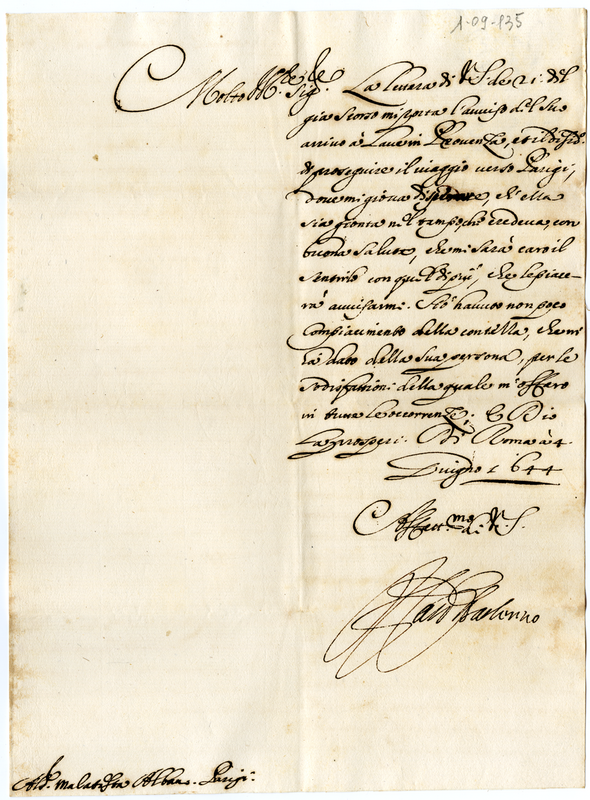 1-09-135
Molto Ill.re Sig.re La lettera di V. S. de 21. del
già scorso mi porta l'auuiso del suo
arriuo à in Prouenza, et il
di proseguire il uiaggio uerso Parigi,
doue mi gioua di, ch'ella
sia gionta nel tempo, che credeua, con
buona salute, che mi sarà caro il
sentirlo con quel di più, che le piace-
rà auuisarmi. Hò hauuto non poco
compiacimento della contezza, che mi
hà dato della sua persona, per le
sodisfattioni della quale m'offero
in tutte le occorrenze. E Dio
la prosperi. Di Roma à 4.
Giugno 1644
Affett.mo di V. S.
Sig. Malatesta Albani. Parigi.